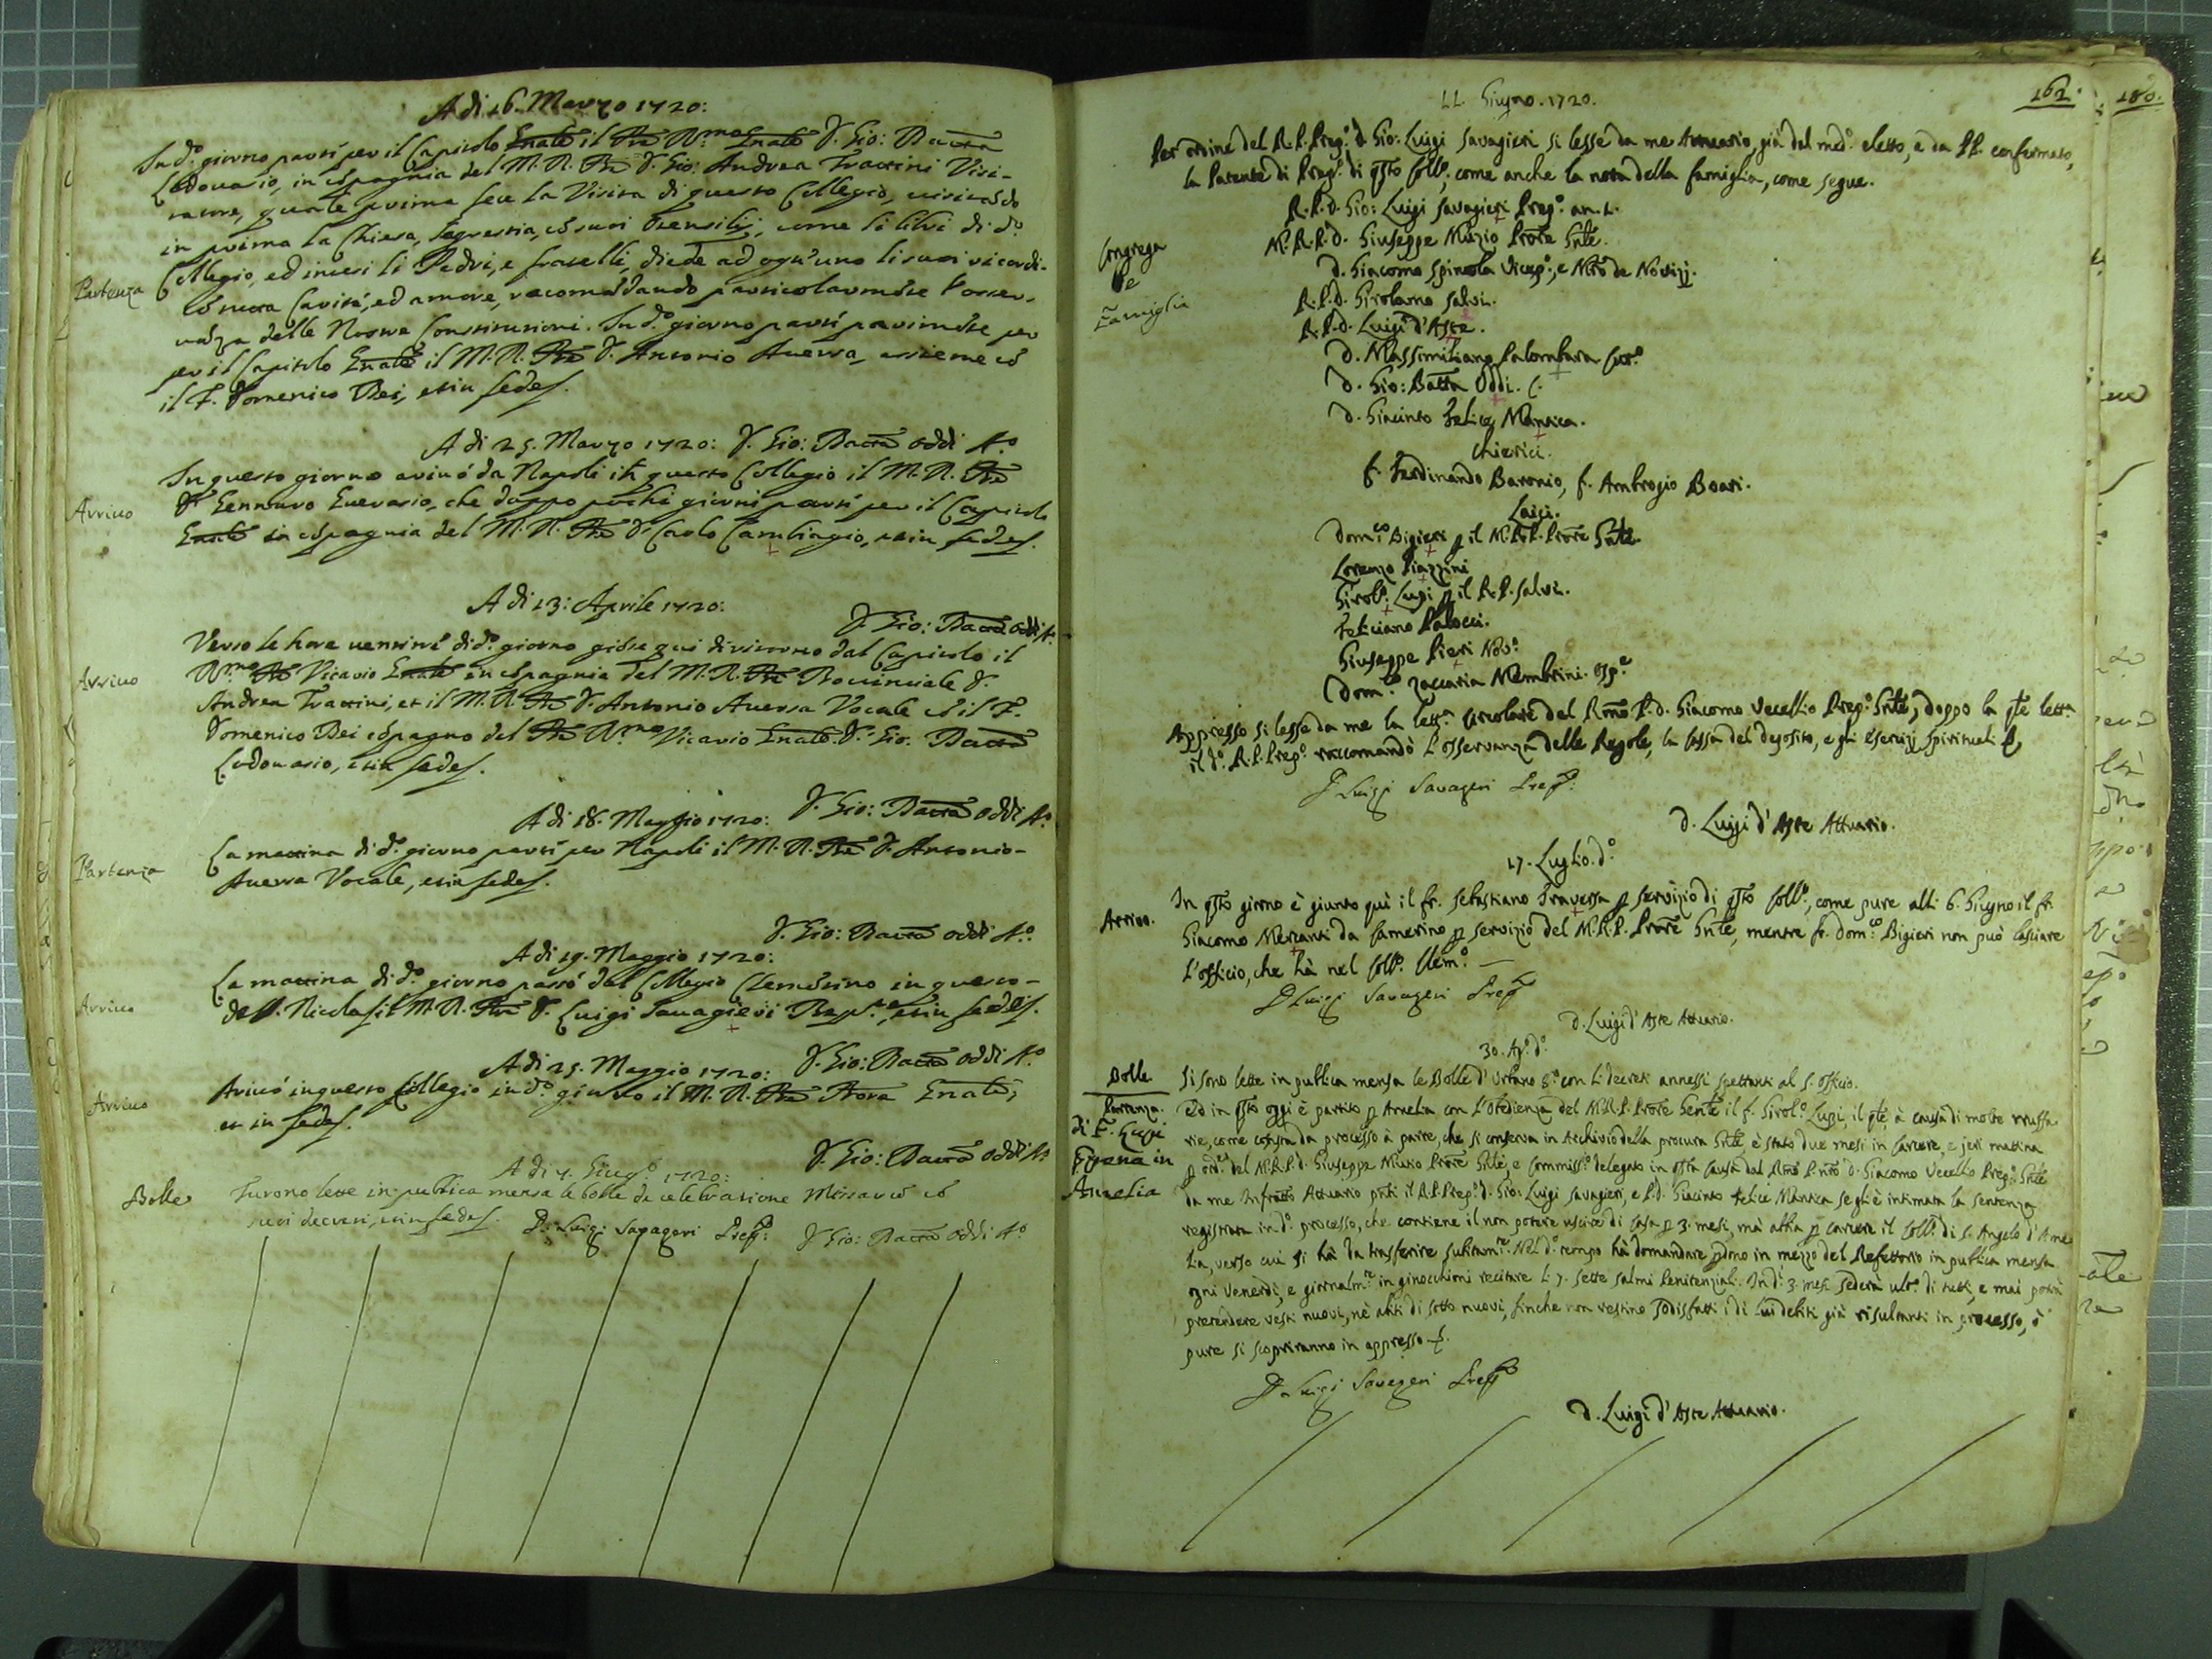 A di 16. Marzo 1720:
In d.º giorno partì per il Capitolo Gñale il Rmo Gñale D. Gio: Batta
Lodovasio, in cõpagnia del M. R. Pre D. Gio: Andrea Trattini Visi-
tatore, quale prima fece la Visita di questo Collegio, visitãdo
in prima la Chiesa, Segrestia, cõ suoi Utensilij, come li libri di d.º
Partenza
Collegio, ed intesi li Padri, e fratelli, diede ad ogn'uno li suoi ricordi
cõ tutta Carità, ed amore, racomãdando particolarmẽte l'osser-
vãza delle Nostre Constitutioni. In d.º giorno partì parimẽte per
per il Capitolo Gñale il M. R. Pre D. Antonio Aversa, assieme cõ
il F. Domenico Bei, et in fede
A di 25. Marzo 1720: D. Gio: Batta Oddi A.º
In questo giorno arivò da Napoli in questo Collegio il M. R. Pre
Arrivo
D. Gennaro Guerasio, che doppo pochi giorni partì per il Capitolo
Gñale in cõpagnia del M. R. Pre D. Carlo Cambiagio, et in fede.
A di 13: Aprile 1720:
D. Gio: Batta Oddi A.º
Verso le hore ventitrè di d.º giorno giõse qui di ritorno dal Capitolo il
Arrivo
Rmo Pre Vicario Gñale in cõpagnia del M. R. Pre Provinciale D.
Andrea Trattini, et il M. R. Pre D. Antonio Aversa Vocale cõ il F.
Domenico Bei cõpagno del Pre Rmo Vicario Gñale D. Gio. Batta
Lodovasio, et in fede.
A di 18. Maggio 1720: D. Gio: Batta Oddi A.º
Partenza
La mattina di d.º giorno partì per Napoli il M. R. Pre D. Antonio
Aversa Vocale, et in fede.
D. Gio: Batta Oddi A.º
A di 19. Maggio 1720:
La mattina di d.º giorno passò dal Collegio Clemẽtino in questo
Arrivo
de S. Nicola il M. R. Pre D. Luigi Savagieri et in fede.
A di 25. Maggio 1720: D. Gio: Batta Oddi A.º
Arrivo
Arivò in questo Collegio in d.º giorno il M. R. Pre Gñale;
et in fede.
D. Gio: Batta Oddi A.º
A di 4. Giug.º 1720:
Bolle
Furono lette in publica mensa le bolle de celebratione Missarũ cõ
suoi decreti, et in fede. D. Luigi Savageri Prep.º D. Gio: Batta Oddi A.º
162.
180.
11. Giugno. 1720.
Per ordine del R. P. Prep.º D. Gio: Luigi Savagieri si lesse da me Attuario, già del med.º eletto, e da PP. confermato,
la Patente di Prep.º di qsto Coll.º, come anche la nota della famiglia, come segue.
Congrega
e
Famiglia
R. P. D. Gio: Luigi Savagieri Prep.º an. 1.
M. R. P. D. Giuseppe Muzio Prore Gñle.
D. Giacomo Spinola Vicep.º, e Mro de Novizj.
R. P. D. Girolamo Salvi.
R. P. D. Luigi d'Aste.
D. Massimiliano Palombara
D. Gio: Batta Oddi. C.
D. Giacinto Felice Mantica.
Chierici.
f. Ferdinando Baronio, f. Ambrogio Boari.
Laici.
Dom.co Bigieri p il M. R. P. Prore Gñle
Lorenzo Piazzini
Girol.º Lupi p il R. P. Salvi.
Feliciano Palocci.
Giuseppe Pieri Nov.º
Dom.co Zaccaria Membrini. Osp.e
Appresso si lesse da me la lett.a Circolare del Rmo P. D. Giacomo Vecellio Prep.º Gñle, doppo la qle lett.a
il d.º R. P. Prep.º raccomandò l'osservanza delle Regole, la Cassa del deposito, e gli esercizj spirituali
D. Luigi Savageri Prep.º
D. Luigi d'Aste Attuario.
17. Luglio. d.º
Arrivo.
In qsto giorno è giunto quì il fr. Sebastiano Traversa p servizio di qsto Coll.º, come pure alli 6. Giugno il fr.
Giacomo Mercanti da Camerino p servizio del M. R. P. Prore Gñle, mentre fr. Dom.co Bigieri non può lasciare
l'officio, che hà nel Coll.º Clem.º
D. Luigi Savageri Prep.º
D. Luigi d'Aste Attuario.
30. Ag.º d.º
Bolle
Si sono lette in publica mensa le Bolle d'Urbano 8.º con li decreti annessi spettanti al S. Officio.
Partenza
di F. Lupi
e pena in
Amelia
Ed in qsto oggi è partito p Amelia con l'Obedienza del M. R. P. Prore Genle il f. Girol.º Lupi, il qle à causa di molte truffa
rie, come costa da processo à parte, che si conserva in Archivio della procura Gñle è stato due mesi in Carcere, e jeri mattina
p ord.e del M. R. P. D. Giuseppe Muzio Prore Gñle, e Commiss.º delegato in qsta causa dal Rmo P. nro D. Giacomo Vecellio Prep.º Gñle
da me Infratto Attuario pnti il R. P. Prep.º D. Gio: Luigi Savagieri, e P. D. Giacinto Felice Mantica se gli è intimata la sentenza
registrata in d.º processo, che contiene il non potere uscire di Casa p 3. mesi, mà abbia p carcere il Coll.º di S. Angelo d'Ame
lia, verso cui si hà da trasferire subitam.te. Nel d.º tempo hà domandare pdono in mezzo del Refettorio in publica mensa
ogni Venerdì, e giornalm.te in ginocchioni recitare li 7. sette salmi Penitenziali. In d.i 3. mesi sederà ult.º di tutti, e mai potrà
pretendere vesti nuovi, nè abiti di sotto nuovi, finche non restino sodisfatti i di lui debiti già risultanti in processo, ò
pure si scopriranno in appresso
D. Luigi Savageri Prep.º
D. Luigi d'Aste Attuario.